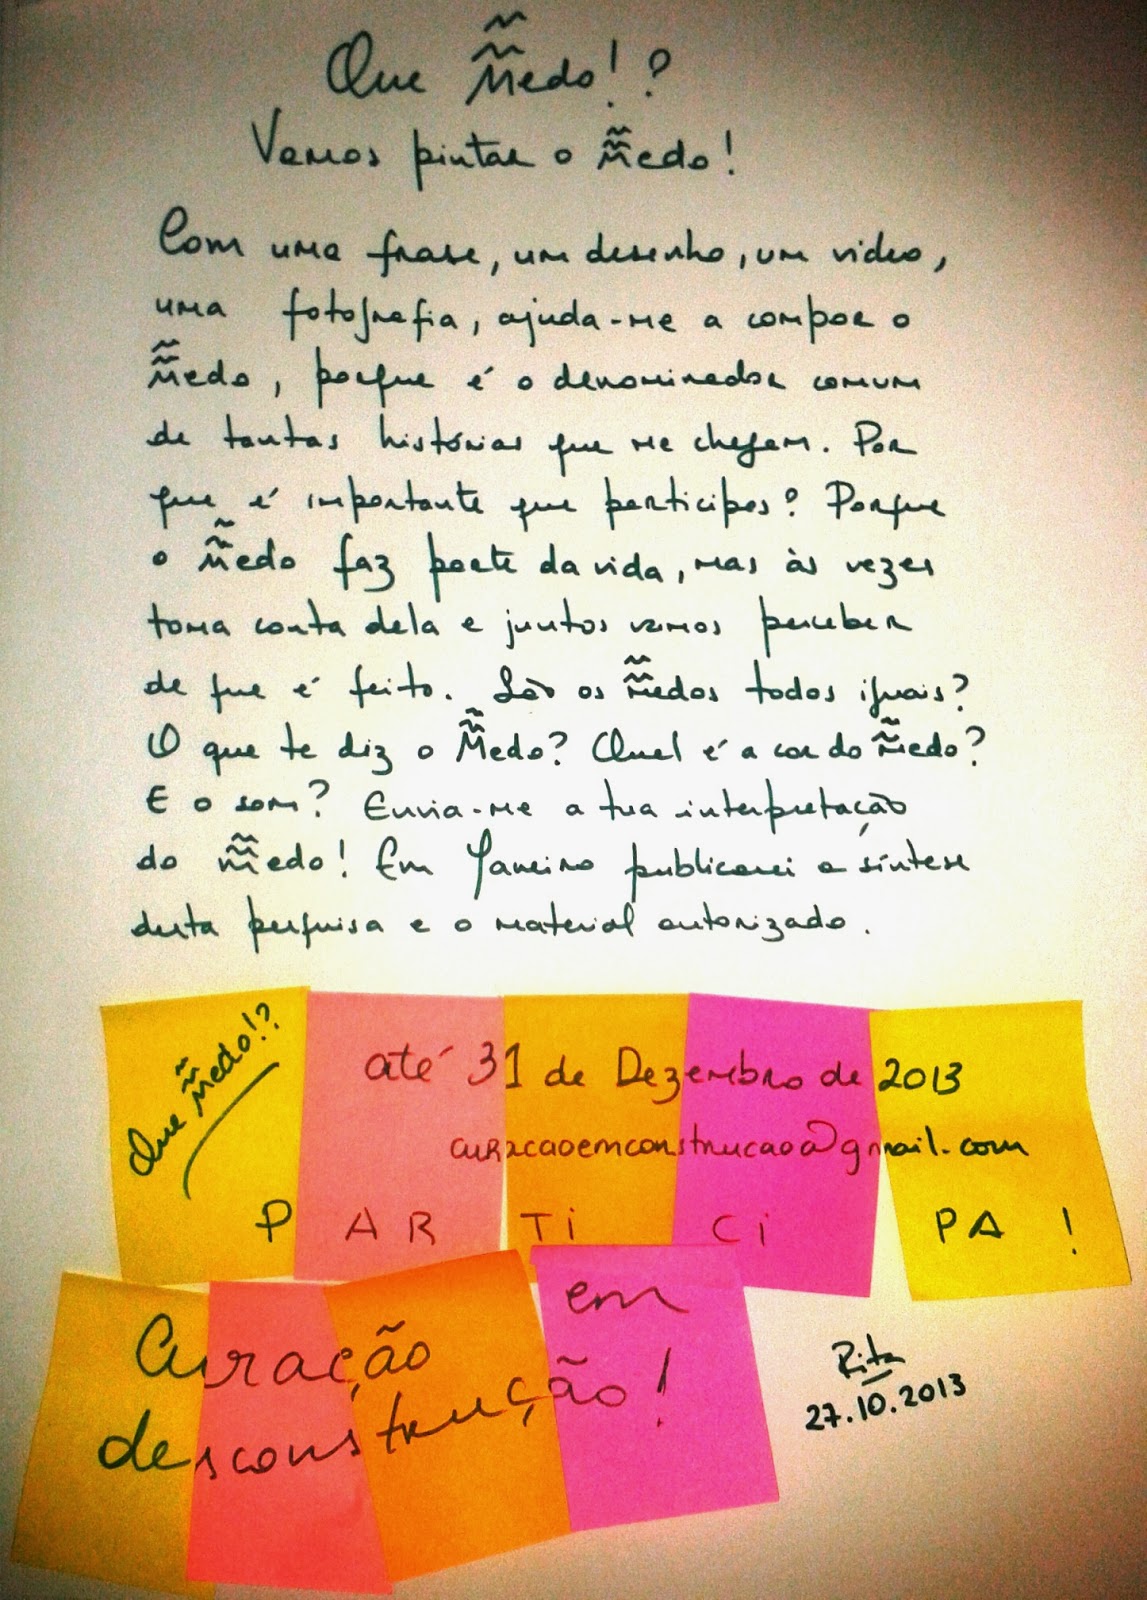 Que Medo!?
Vamos pintar o Medo!
Com uma frase, um desenho, um video,
uma fotografia, ajuda-me a compor o
Medo, porque é o denominador comum
de tantas histórias que me chegam. Por
que é importante que participes? Porque
o Medo faz parte da vida, mas às vezes
toma conta dela e juntos vamos perceber
de que é feito. São os Medos todos iguais?
O que te diz o Medo? Qual é a cor do Medo?
E o som? Envia-me a tua interpretação
do Medo! Em Janeiro publicarei a síntese
desta pesquisa e o material autorizado.
Que Medo!?
até 31 de Dezembro de 2013
curacaoemconstrucao@gmail.com
PARTiCiPA!
Curação em
desconstrução!
Rita
27.10.2013